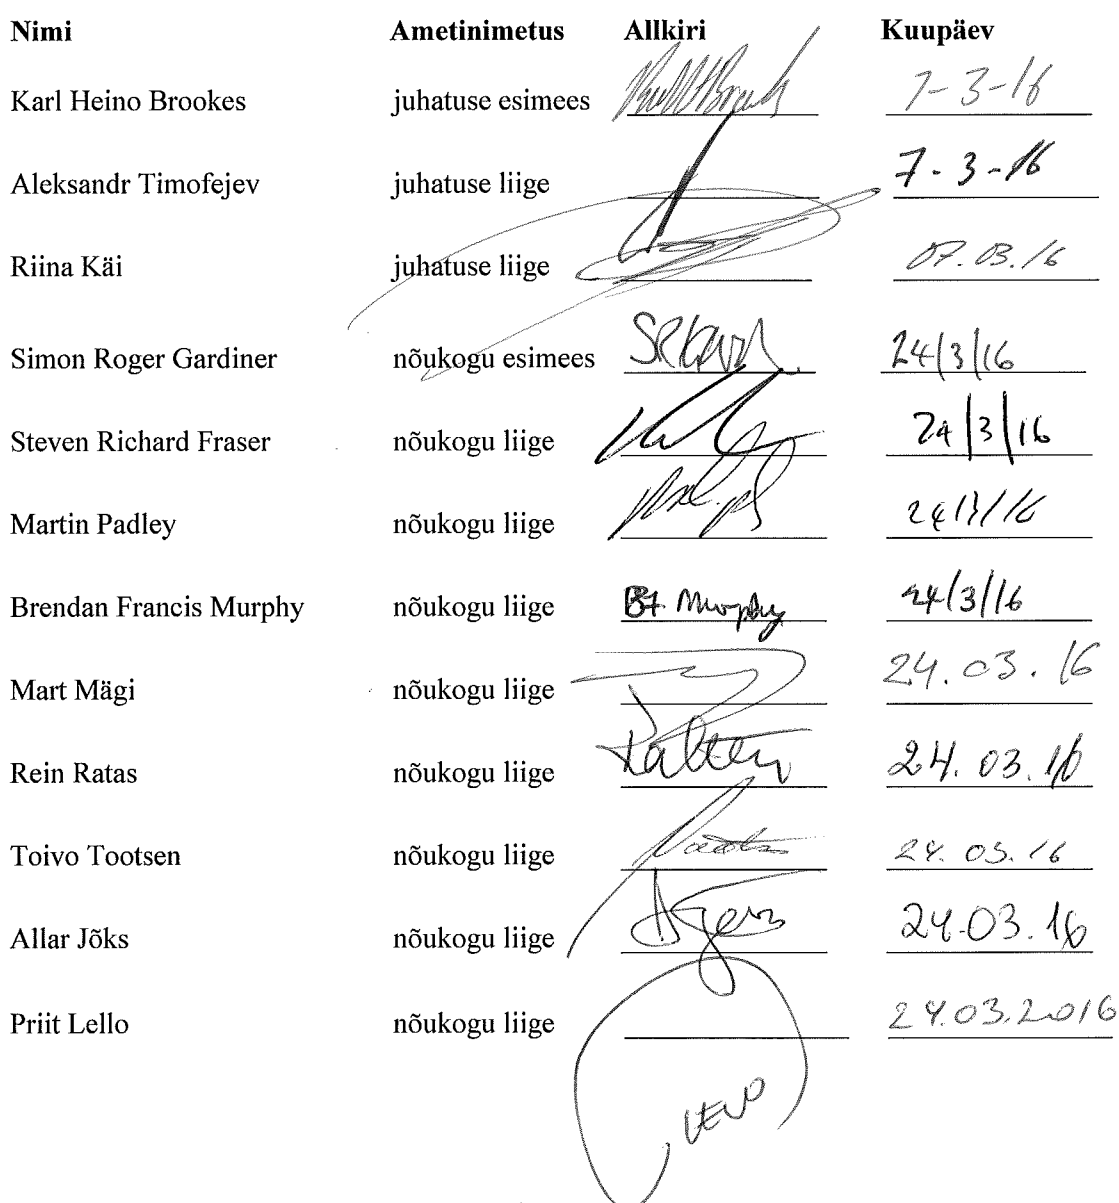 Nimi Ametinimetus Allkiri Kuupäev
Karl Heino Brookes juhatuse esimees 7-3-16
Aleksandr Timofejev juhatuse liige 7-3-16
Riina Käi juhatuse liige 07.03.16
Simon Roger Gardiner nõukogu esimees 24/3/16
Steven Richard Fraser nõukogu liige 24/3/16
Martin Padley nõukogu liige 24/3/16
Brendan Francis Murphy nõukogu liige BF Murphy 24/3/16
Mart Mägi nõukogu liige 24.03.16
Rein Ratas nõukogu liige 24.03.16
Toivo Tootsen nõukogu liige 24.03.16
Allar Jõks nõukogu liige 24.03.16
Priit Lello nõukogu liige 24.03.2016